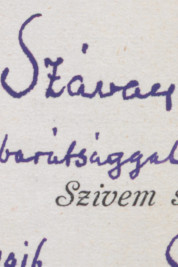 Szávay
barátsággal
Szivem s